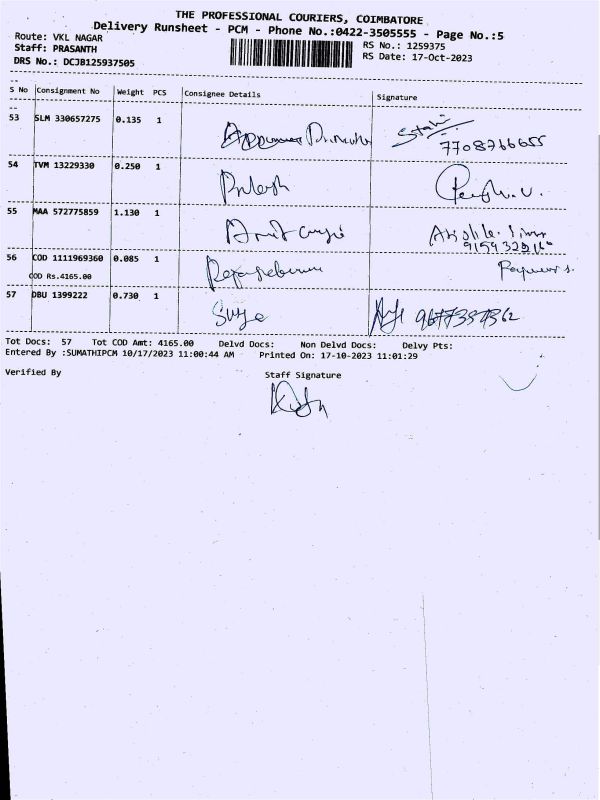 THE PROFESSIONAL COURIERS, COIMBATORE
Delivery Runsheet - PCM - Phone No.:0422-3505555 - Page No.:5
Route: VKL NAGAR
RS No.: 1259375
Staff: PRASANTH
RS Date: 17-Oct-2023
DRS No.: DCJB125937505
S No Consignment No Weight PCS Consignee Details Signature
53 SLM 330657275 0.135 1
7708766655
54 TVM 13229330 0.250 1
55 MAA 572775859 1.130 1
56 COD 1111969360 0.085 1
COD Rs.4165.00
57 DBU 1399222 0.730 1
Tot Docs: 57 Tot COD Amt: 4165.00 Delvd Docs: Non Delvd Docs: Delvy Pts:
Entered By :SUMATHIPCM 10/17/2023 11:00:44 AM Printed On: 17-10-2023 11:01:29
Verified By Staff Signature